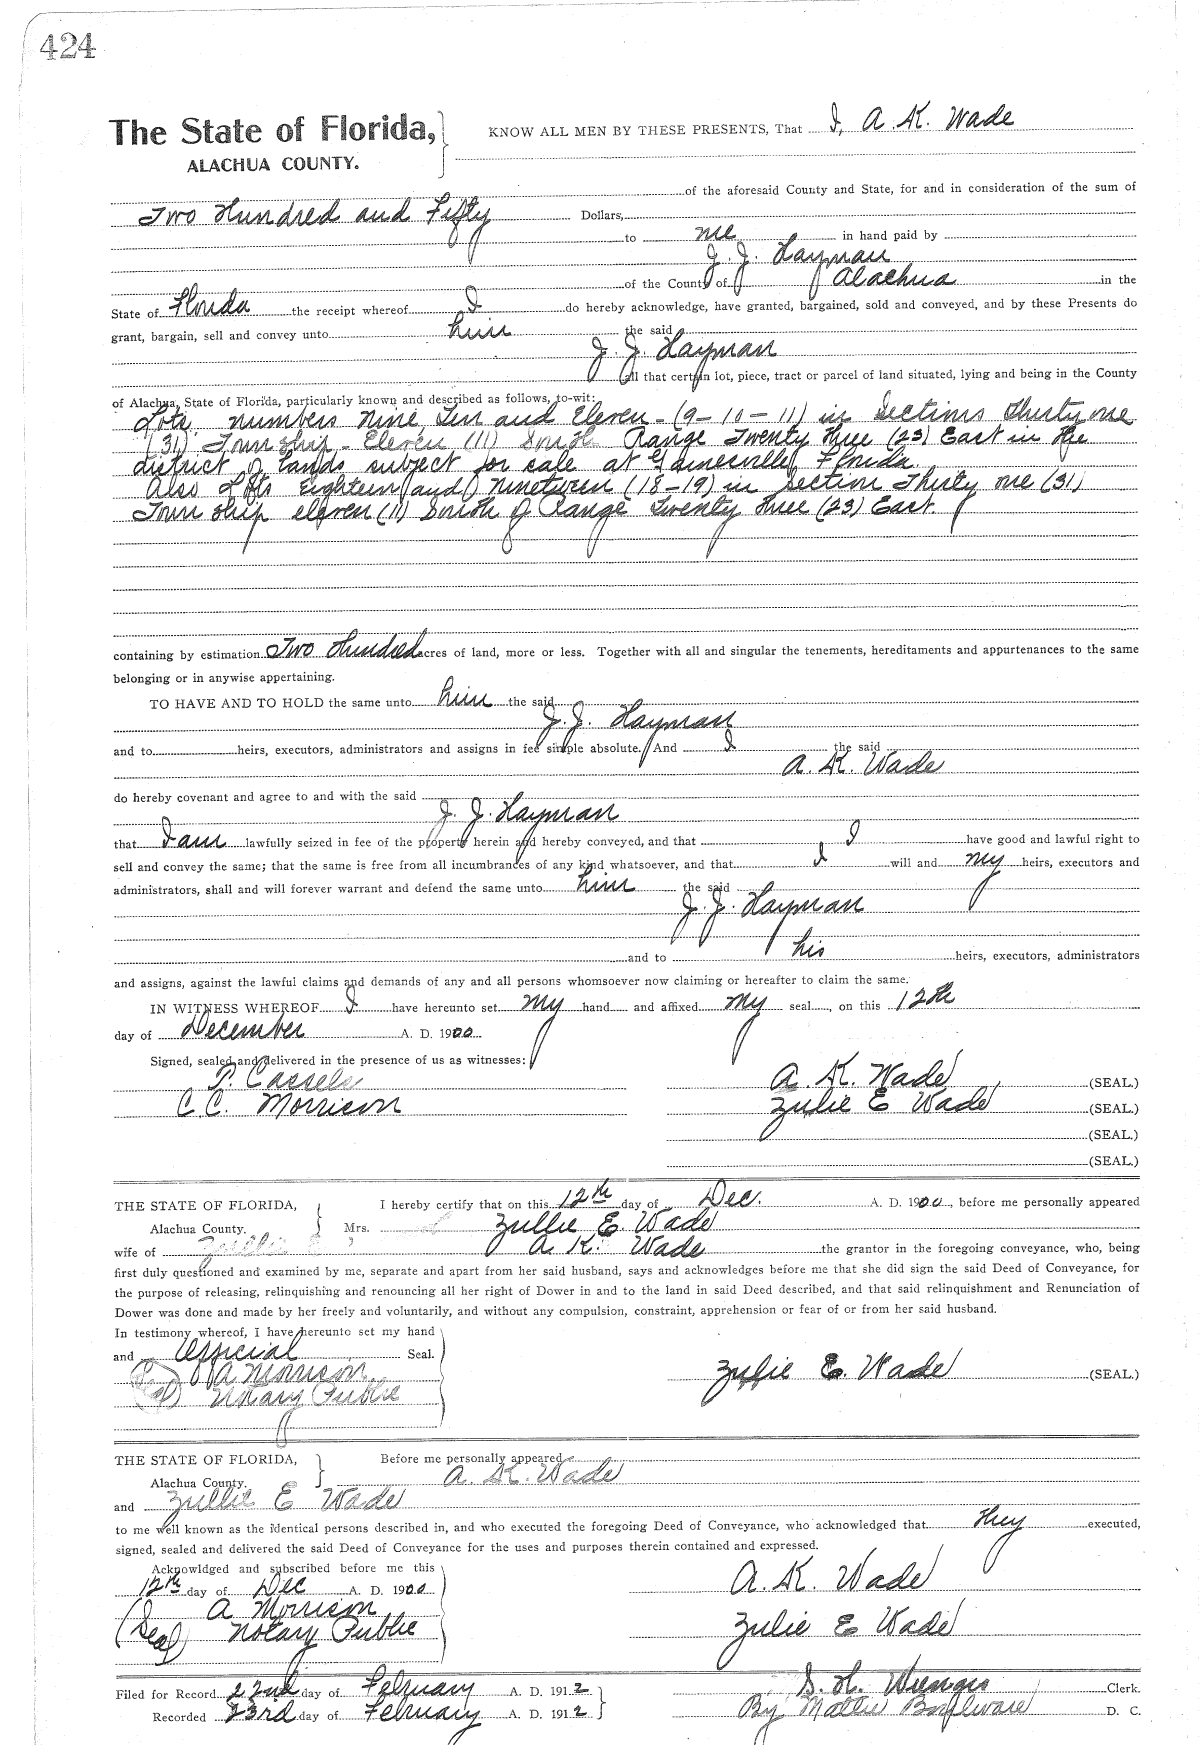 424
The State of Florida, KNOW ALL MEN BY THESE PRESENTS, That I, A. K. Wade
ALACHUA COUNTY.
of the aforesaid County and State, for and in consideration of the sum of
Two Hundred and Fifty Dollars,
to me in hand paid by
J. J. Hayman
of the County of Alachua in the
State of Florida the receipt whereof I do hereby acknowledge, have granted, bargained, sold and conveyed, and by these Presents do
grant, bargain, sell and convey unto him the said
J. J. Hayman
all that certain lot, piece, tract or parcel of land situated, lying and being in the County
of Alachua, State of Florida, particularly known and described as follows, to-wit:
Lots numbers Nine, Ten and Eleven - (9-10-11) in Sections Thirty one
(31) Township - Eleven (11) South Range Twenty three (23) East in the
district of lands subject for sale at Gainesville, Florida
Also Lots Eighteen and Nineteen (18-19) in Section Thirty one (31)
Township eleven (11) South of Range Twenty three (23) East
containing by estimation Two Hundred acres of land, more or less. Together with all and singular the tenements, hereditaments and appurtenances to the same
belonging or in anywise appertaining.
TO HAVE AND TO HOLD the same unto him the said
J. J. Hayman
and to heirs, executors, administrators and assigns in fee simple absolute. And I the said
A. K. Wade
do hereby covenant and agree to and with the said
J. J. Hayman
that I am lawfully seized in fee of the property herein and hereby conveyed, and that I have good and lawful right to
sell and convey the same; that the same is free from all incumbrances of any kind whatsoever, and that I will and my heirs, executors and
administrators, shall and will forever warrant and defend the same unto him the said
J. J. Hayman
and to his heirs, executors, administrators
and assigns, against the lawful claims and demands of any and all persons whomsoever now claiming or hereafter to claim the same.
IN WITNESS WHEREOF I have hereunto set my hand and affixed my seal, on this 12th
day of December A. D. 1900
Signed, sealed and delivered in the presence of us as witnesses:
P. Cassels A. K. Wade (SEAL.)
C. C. Morrison Zulie E Wade (SEAL.)
(SEAL.)
(SEAL.)
THE STATE OF FLORIDA, I hereby certify that on this 12th day of Dec. A. D. 1900, before me personally appeared
Alachua County. Mrs. Zullie E. Wade
wife of A. K. Wade the grantor in the foregoing conveyance, who, being
first duly questioned and examined by me, separate and apart from her said husband, says and acknowledges before me that she did sign the said Deed of Conveyance, for
the purpose of releasing, relinquishing and renouncing all her right of Dower in and to the land in said Deed described, and that said relinquishment and Renunciation of
Dower was done and made by her freely and voluntarily, and without any compulsion, constraint, apprehension or fear of or from her said husband.
In testimony whereof, I have hereunto set my hand
and Official Seal.
(Seal) A Morrison Zulie E. Wade (SEAL.)
Notary Public
THE STATE OF FLORIDA, Before me personally appeared
Alachua County. A. K. Wade
and Zullie E Wade
to me well known as the identical persons described in, and who executed the foregoing Deed of Conveyance, who acknowledged that they executed,
signed, sealed and delivered the said Deed of Conveyance for the uses and purposes therein contained and expressed.
Acknowldged and subscribed before me this
12th day of Dec A. D. 1900 A. K. Wade
A Morrison
(Seal) Notary Public Zulie E Wade
Filed for Record 22nd day of February A. D. 1912 S. H. Wienges Clerk.
Recorded 23rd day of February A. D. 1912 By Mattie Boulware D. C.